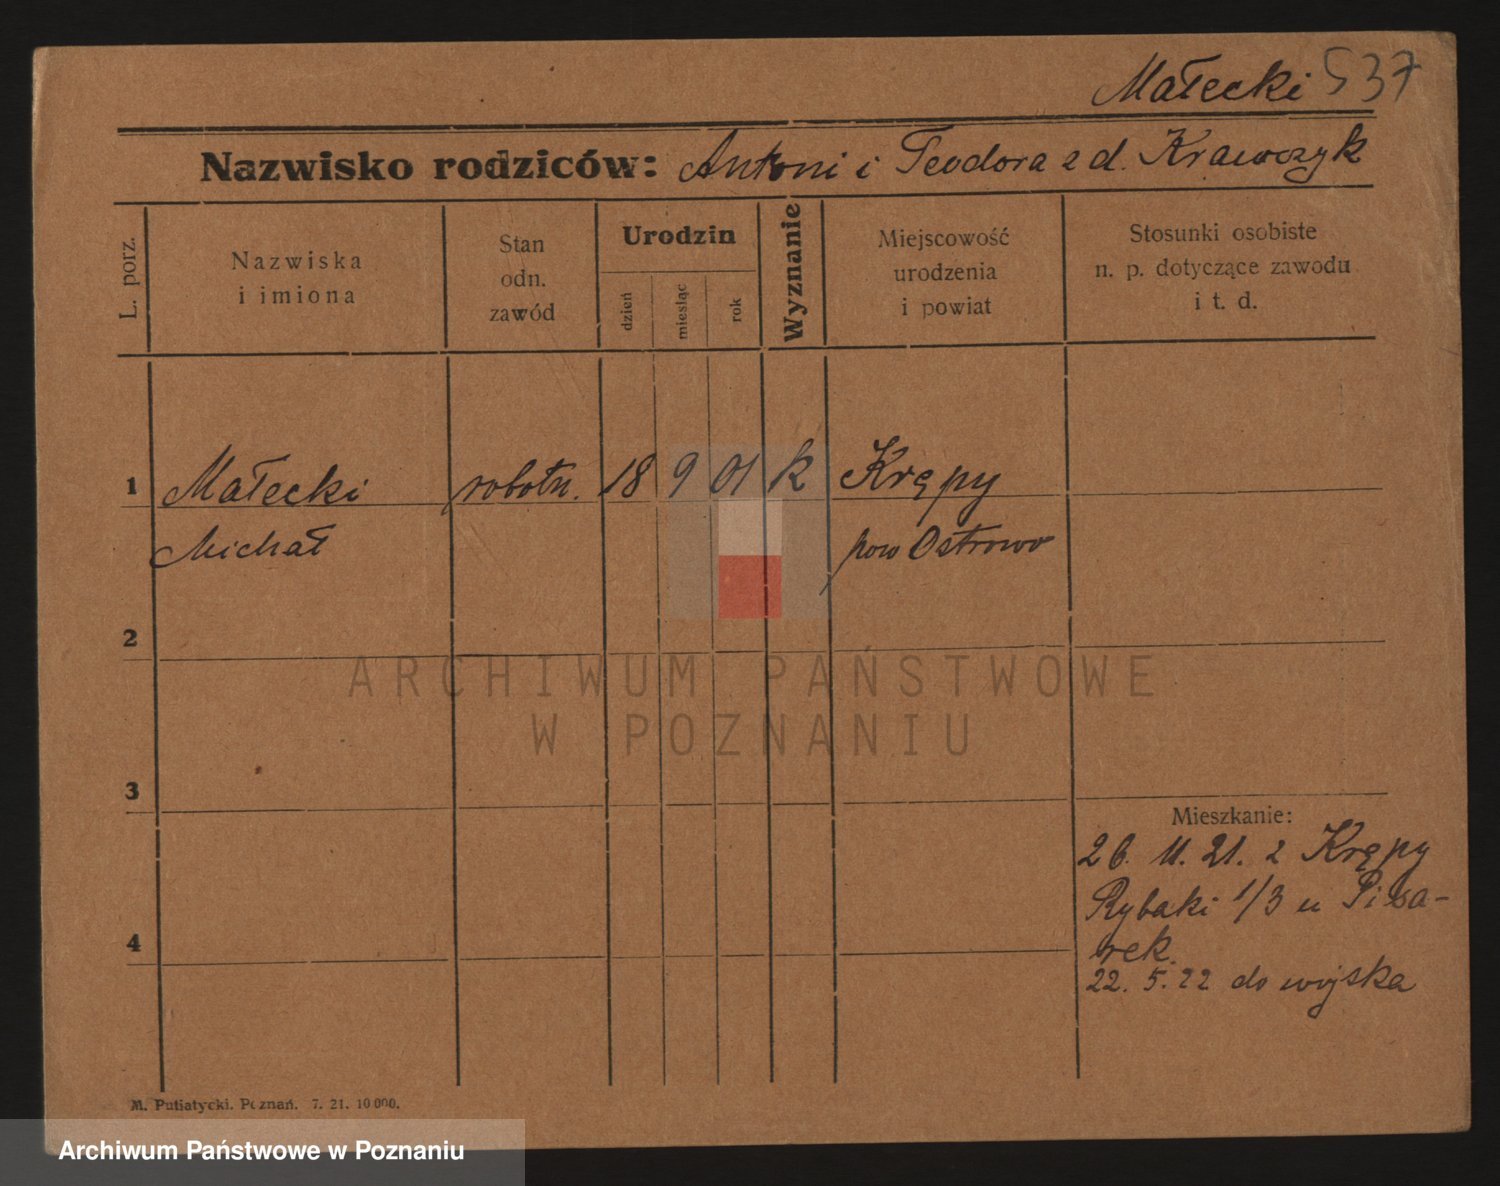 Małecki 537
Nazwisko rodziców: Antoni i Teodora z d. Krawczyk
L. porz.
Nazwiska
i imiona
Stan
odn.
zawód
Urodzin
dzień
miesiąc
rok
Wyznanie
Miejscowość
urodzenia
i powiat
Stosunki osobiste
n. p. dotyczące zawodu
i t. d.
1 Małecki robotn. 18 9 01 k Krępy
Michał pow Ostrowo
2
3
Mieszkanie:
26. 11. 21. z Krępy
Rybaki 1/3 u Pisa-
rek.
4
22. 5. 22 do wojska
M. Putiatycki. Poznań. 7. 21. 10 000.
ARCHIWUM PAŃSTWOWE
W POZNANIU
Archiwum Państwowe w Poznaniu